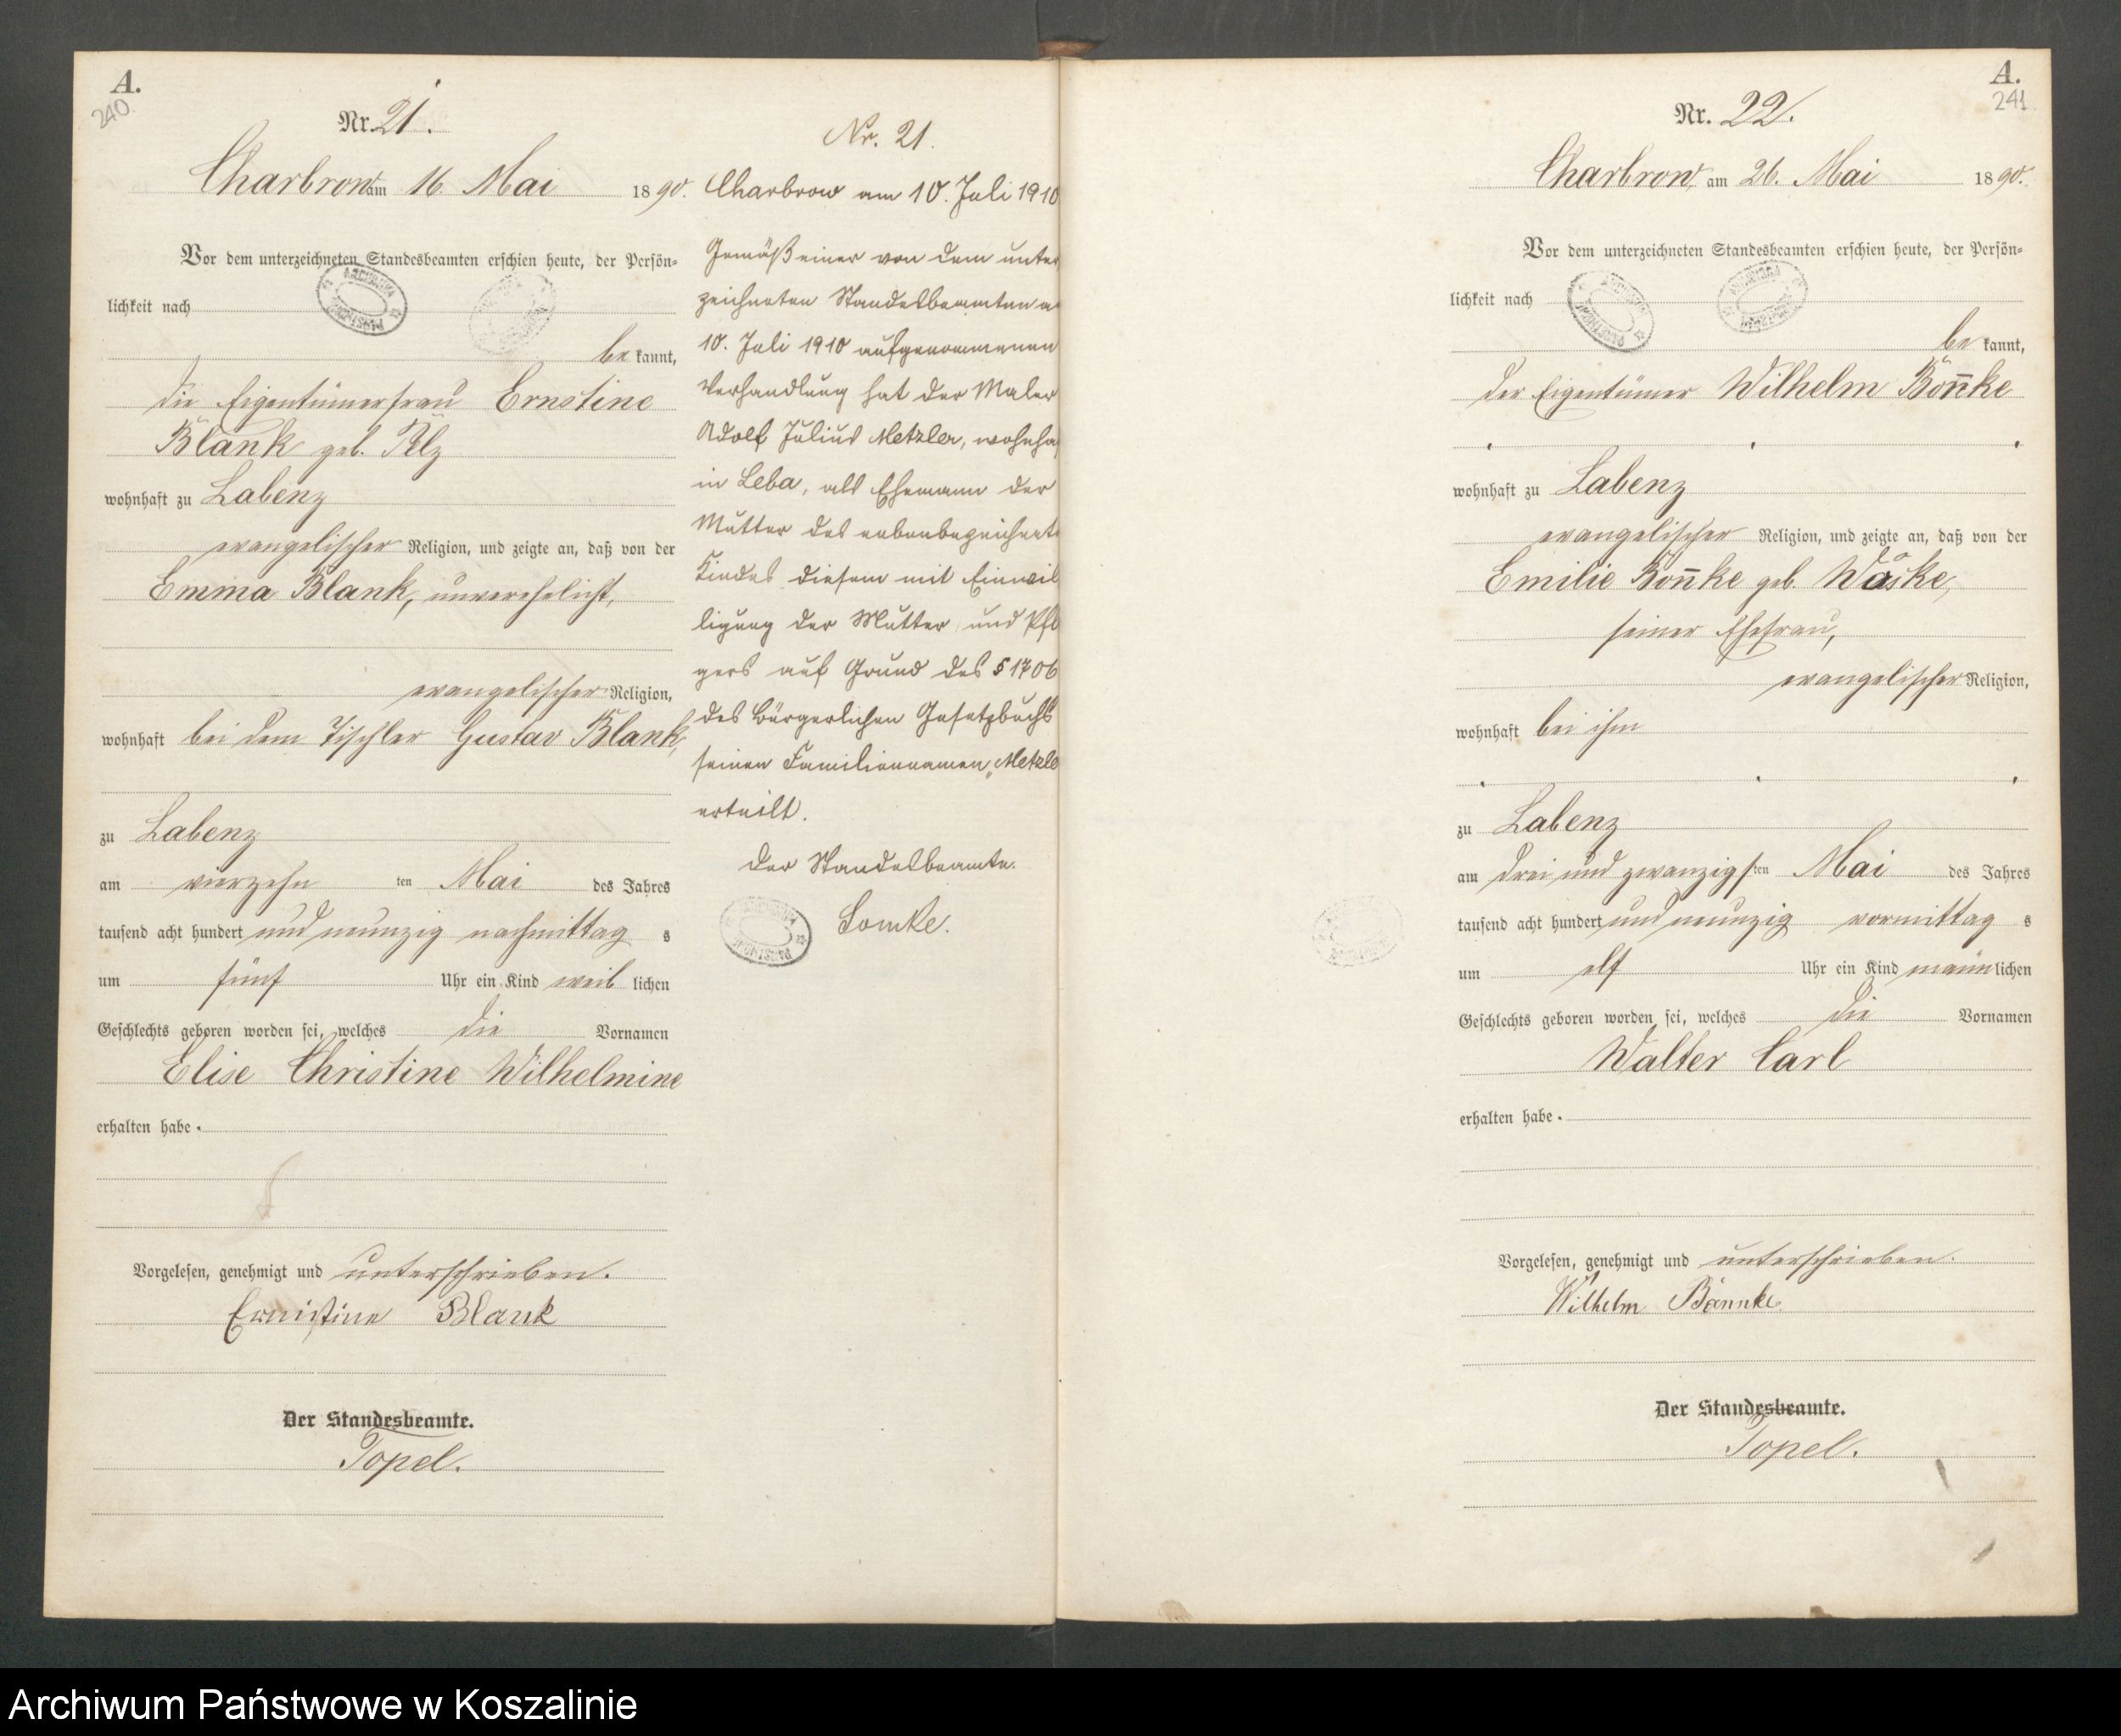 A.
240.
Nr. 21.
Charbrow am 16. Mai 1890.
Vor dem unterzeichneten Standesbeamten erschien heute, der Persön-
lichkeit nach
be kannt,
die Eigentümerfrau Ernstine
Blank geb. Pelz
wohnhaft zu Labenz
evangelischer Religion, und zeigte an, daß von der
Emma Blank, unverehelicht,
evangelischer Religion,
wohnhaft bei dem Tischler Gustav Blank,
zu Labenz
am vierzehn ten Mai des Jahres
tausend acht hundert und neunzig nachmittag s
um fünf Uhr ein Kind weib lichen
Geschlechts geboren worden sei, welches die Vornamen
Elise Christine Wilhelmine
erhalten habe.
Vorgelesen, genehmigt und unterschrieben.
Ernistine Blank
Der Standesbeamte.
Topel.
Nr. 21.
Charbrow am 10. Juli 1910
Gemäß einer von dem unter
zeichneten Standesbeamten a
10. Juli 1910 aufgenommenen
Verhandlung hat der Maler
Adolf Julius Metzler, wohnha
in Leba, als Ehemann der
Mutter des nebenbezeichnet
Kindes diesem mit Einwil
ligung der Mutter und Pfl
gers auf Grund des § 1706
des Bürgerlichen Gesetzbuchs
seinen Familiennamen „Metzle
erteilt.
Der Standesbeamte.
Lomke.
A.
241
Nr. 22.
Charbrow, am 26. Mai 1890.
Vor dem unterzeichneten Standesbeamten erschien heute, der Persön-
lichkeit nach
be kannt,
der Eigentümer Wilhelm Bon̄ke
wohnhaft zu Labenz
evangelischer Religion, und zeigte an, daß von der
Emilie Bon̄ke geb. Waske,
seiner Ehefrau,
evangelischer Religion,
wohnhaft bei ihm
zu Labenz
am drei und zwanzigsten Mai des Jahres
tausend acht hundert und neunzig vormittag s
um elf Uhr ein Kind män̄lichen
Geschlechts geboren worden sei, welches die Vornamen
Walter Carl
erhalten habe.
Vorgelesen, genehmigt und unterschrieben.
Wilhelm Bännke
Der Standesbeamte.
Topel.
Archiwum Państwowe w Koszalinie